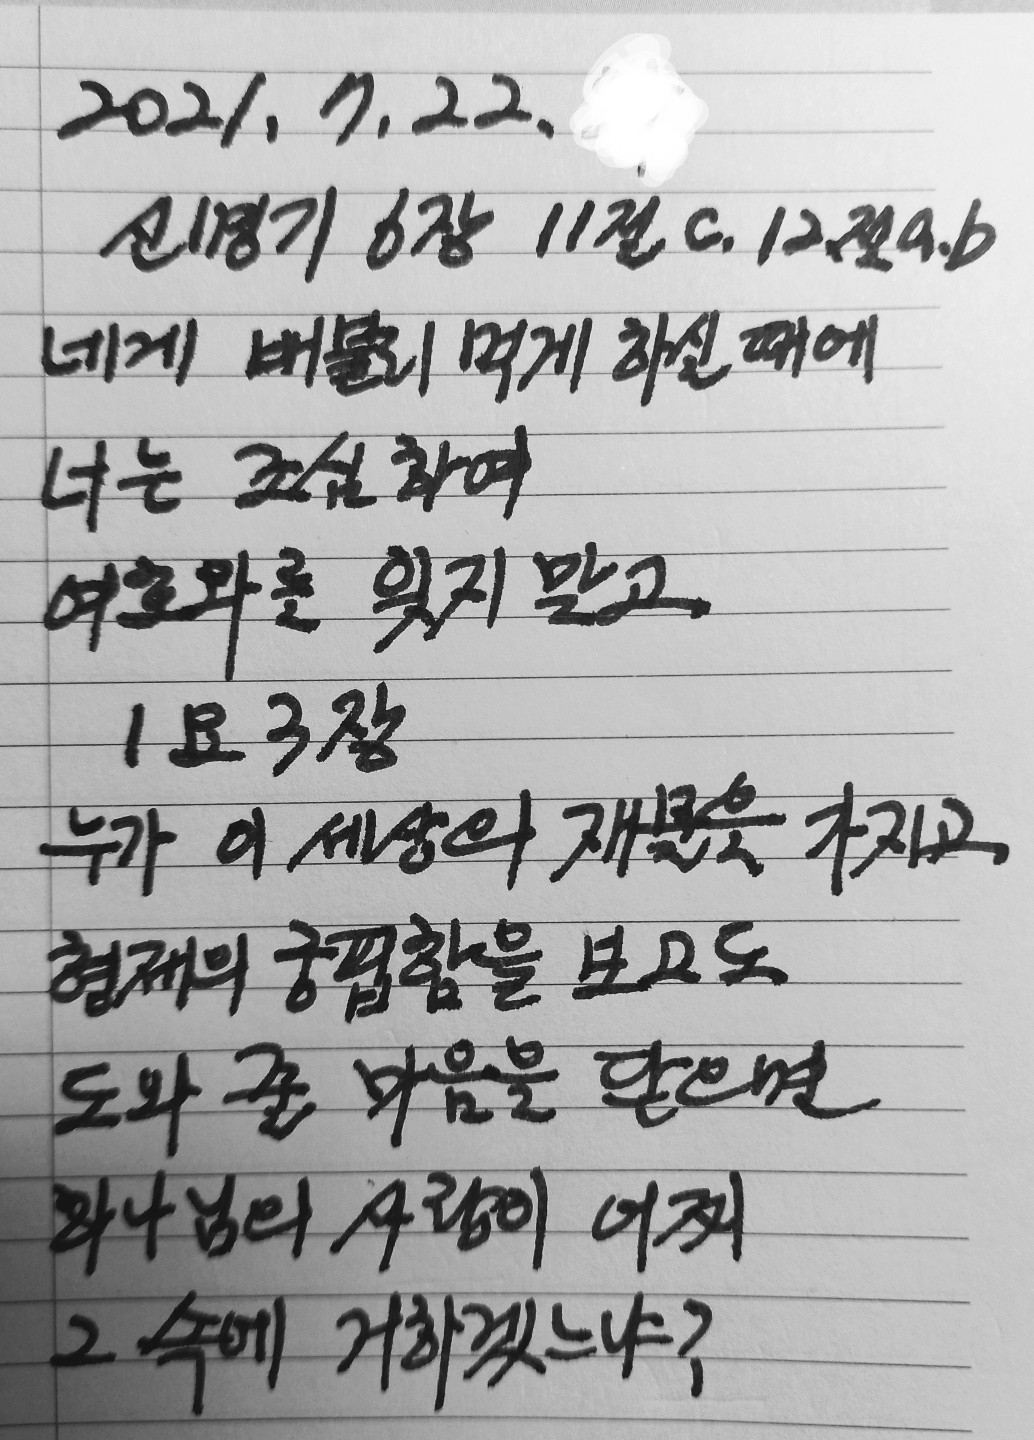 2021. 7. 22.
신명기 6장 11절 c. 12절 a.b
네게 배불리 먹게 하실 때에
너는 조심하여
여호와를 잊지 말고
1요 3장
누가 이 세상의 재물을 가지고
형제의 궁핍함을 보고도
도와 줄 마음을 닫으면
하나님의 사랑이 어찌
그 속에 거하겠느냐?